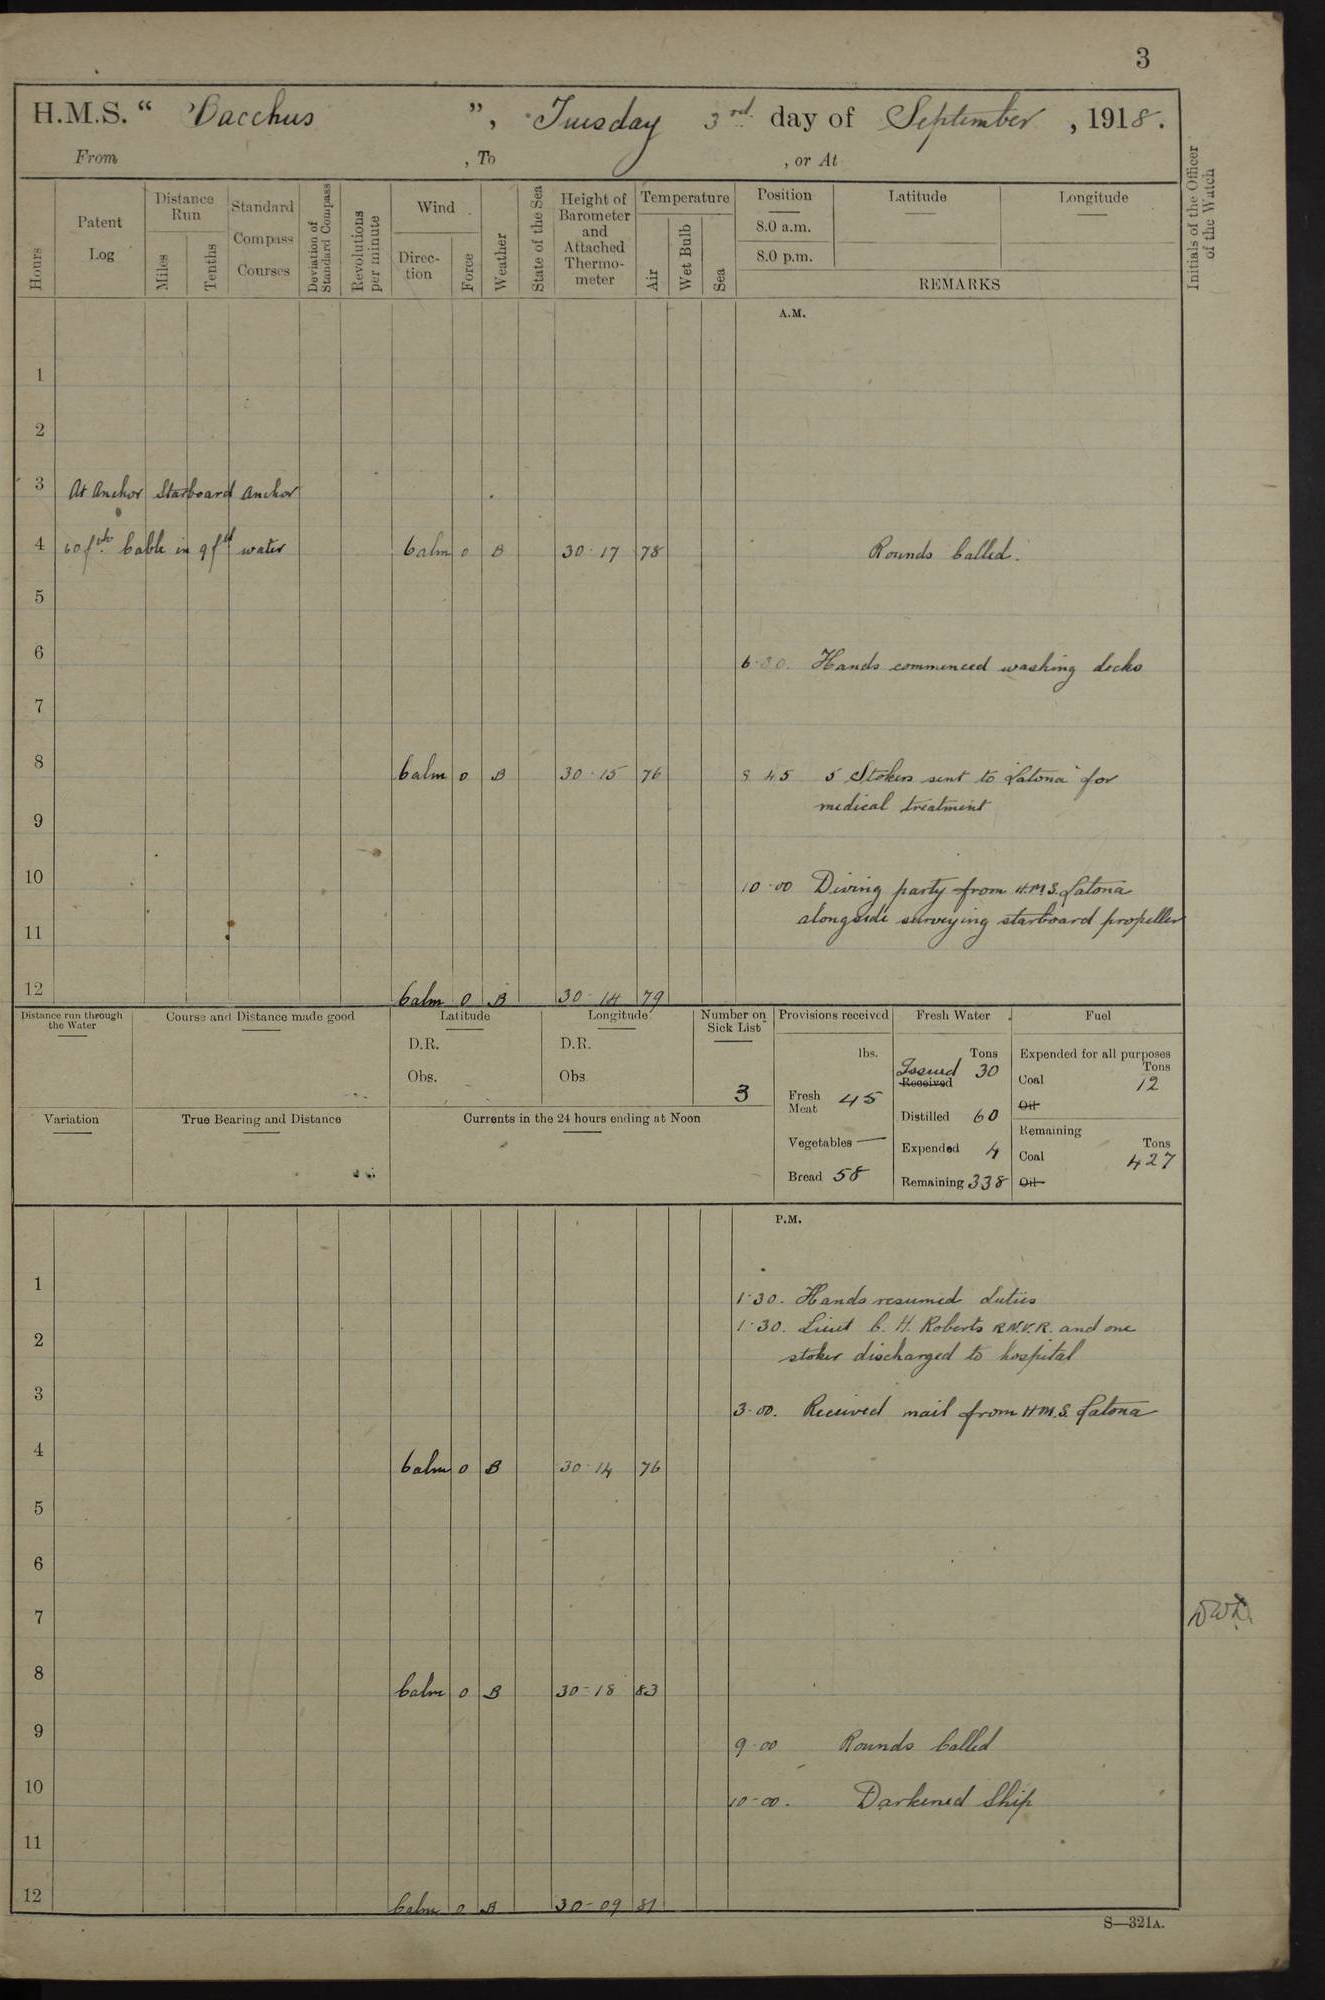 3
H.M.S. “ Bacchus ”, Tuesday 3rd. day of September , 1918.
From , To , or At
Hours
Patent Log
Distance Run
Miles
Tenths
Standard Compass Courses
Deviation of Standard Compass
Revolutions per minute
Wind
Direc-tion
Force
Weather
State of the Sea
Height of Barometer and Attached Thermo-meter
Temperature
Air
Wet Bulb
Sea
Position
8.0 a.m.
8.0 p.m.
Latitude
Longitude
REMARKS
Initials of the Officer of the Watch
A.M.
1
2
3 At Anchor Starboard Anchor
4 60 fths Cable in 9 fth water Calm 0 B 30·17 78 Rounds Called.
5
6 6·30. Hands commenced washing decks
7
8 Calm 0 B 30·15 76 8 45 5 Stokers sent to "Latona" for
medical treatment
9
10 10·00 Diving party from H.M.S. Latona
alongside surveying starboard propeller
11
12 Calm 0 B 30-14 79
Distance run through the Water
Course and Distance made good
Latitude
D.R.
Obs.
Longitude
D.R.
Obs
Number on Sick List
3
Provisions received
lbs.
Fresh Meat 45
Vegetables —
Bread 58
Fresh Water
Tons
Issued 30
Received
Distilled 60
Expended 4
Remaining 338
Fuel
Expended for all purposes
Tons
Coal 12
Oil
Remaining
Tons
Coal 427
Oil
Variation
True Bearing and Distance
Currents in the 24 hours ending at Noon
P.M.
1 1·30. Hands resumed duties
2 1·30. Lieut C. H. Roberts R.N.V.R. and one
stoker discharged to hospital
3 3·00. Received mail from H.M.S. Latona
4 Calm 0 B 30·14 76
5
6
7
8 Calm 0 B 30-18 83
9 9-00 Rounds Called
10 10-00. Darkened Ship
11
12 Calm 0 B 30-09 81
S—321A.